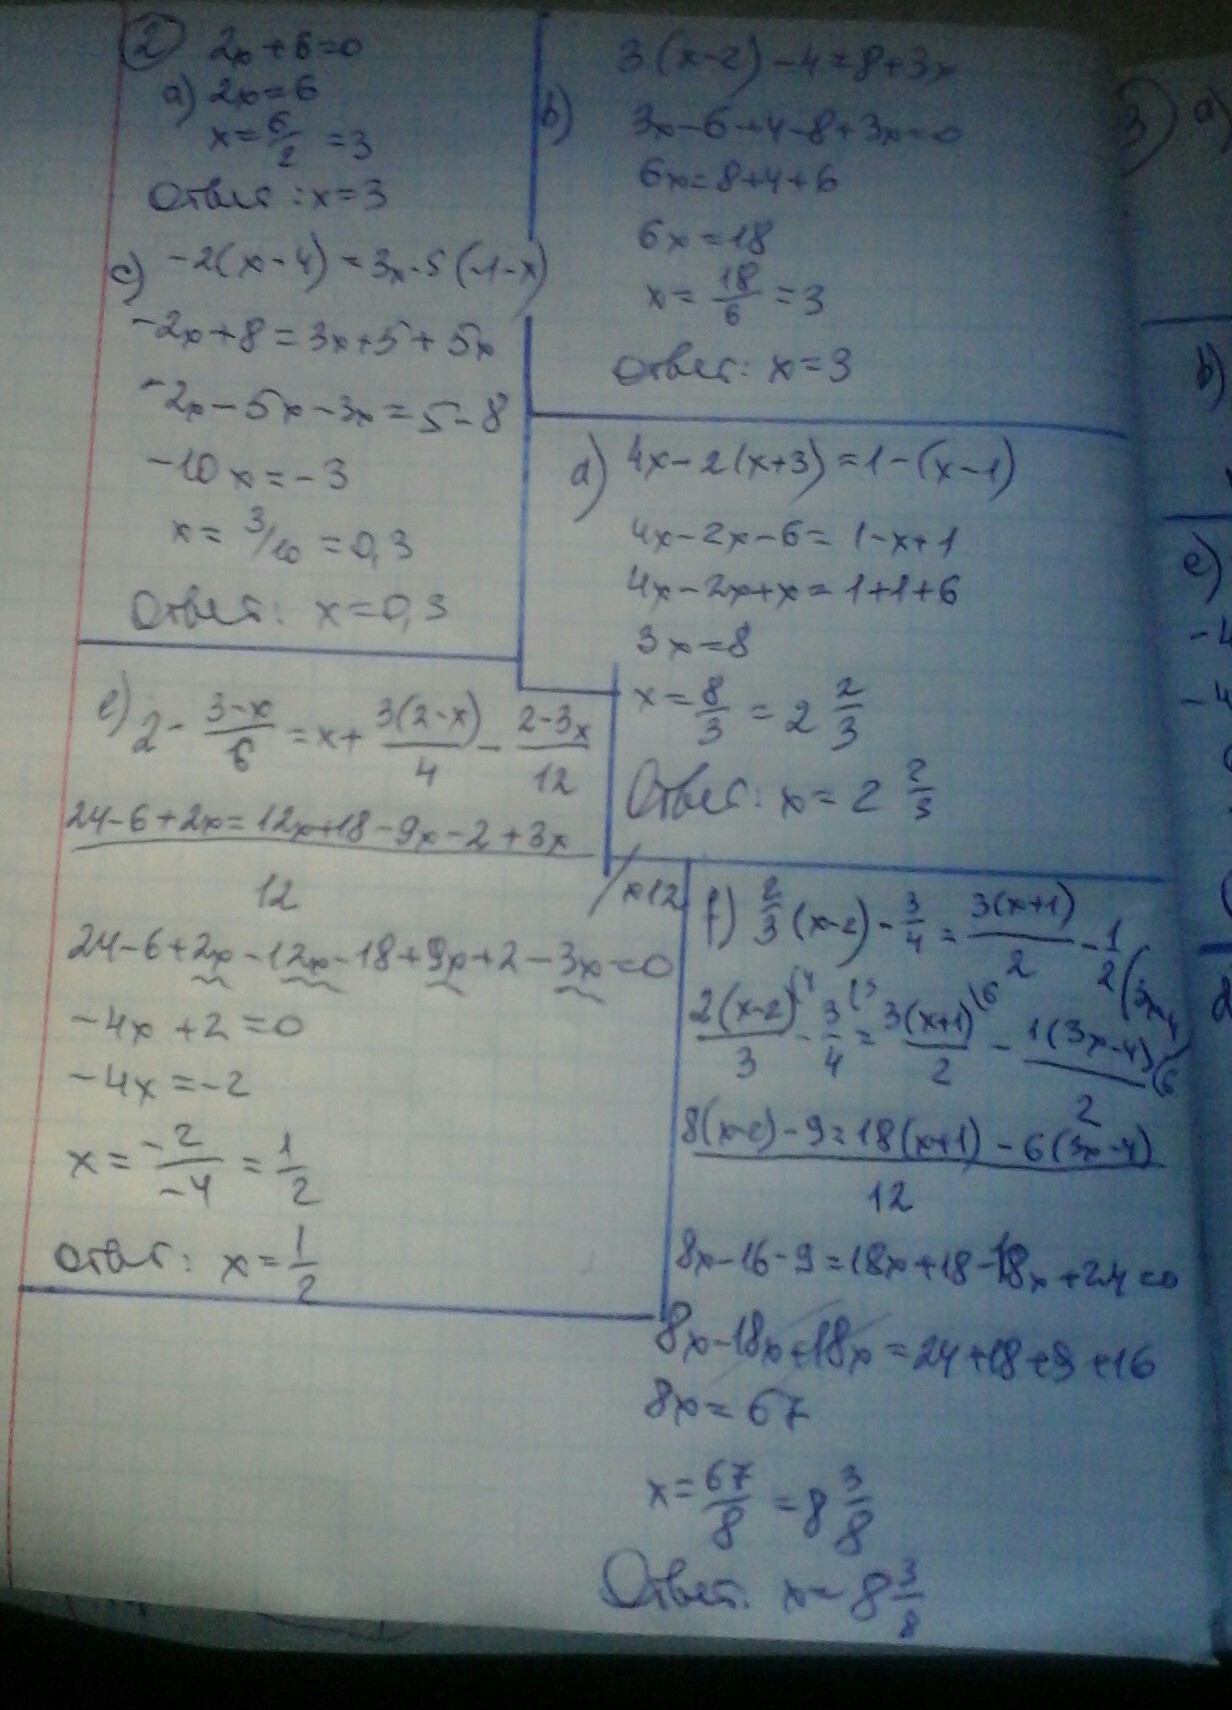 2 2x+6=0
a) 2x=6
x=6/2=3
Ответ: x=3
b) 3(x-2)-4=8+3x
3x-6-4-8+3x=0
6x=8+4+6
6x=18
x=18/6=3
Ответ: x=3
c) -2(x-4)=3x-5(-1-x)
-2x+8=3x+5+5x
-2x-5x-3x=5-8
-10x=-3
x=3/10=0,3
Ответ: x=0,3
d) 4x-2(x+3)=1-(x-1)
4x-2x-6=1-x+1
4x-2x+x=1+1+6
3x=8
x=8/3=2 2/3
Ответ: x=2 2/3
e) 2-(3-x)/6=x+3(2-x)/4-(2-3x)/12
24-6+2x=12x+18-9x-2+3x
12
/x12
24-6+2x-12x-18+9x+2-3x=0
-4x+2=0
-4x=-2
x=-2/-4=1/2
Ответ: x=1/2
f) 2/3(x-2)-3/4=3(x+1)/2-1/2(3x-4)
2(x-2)/3(4-3/4(3=3(x+1)/2(6-1(3x-4)/2(6
8(x-2)-9=18(x+1)-6(3x-4)
12
8x-16-9=18x+18-18x+24=0
8x-18x+18x=24+18+9+16
8x=67
x=67/8=8 3/8
Ответ: x=8 3/8
3) a)
b)
c)
-4
-4
d